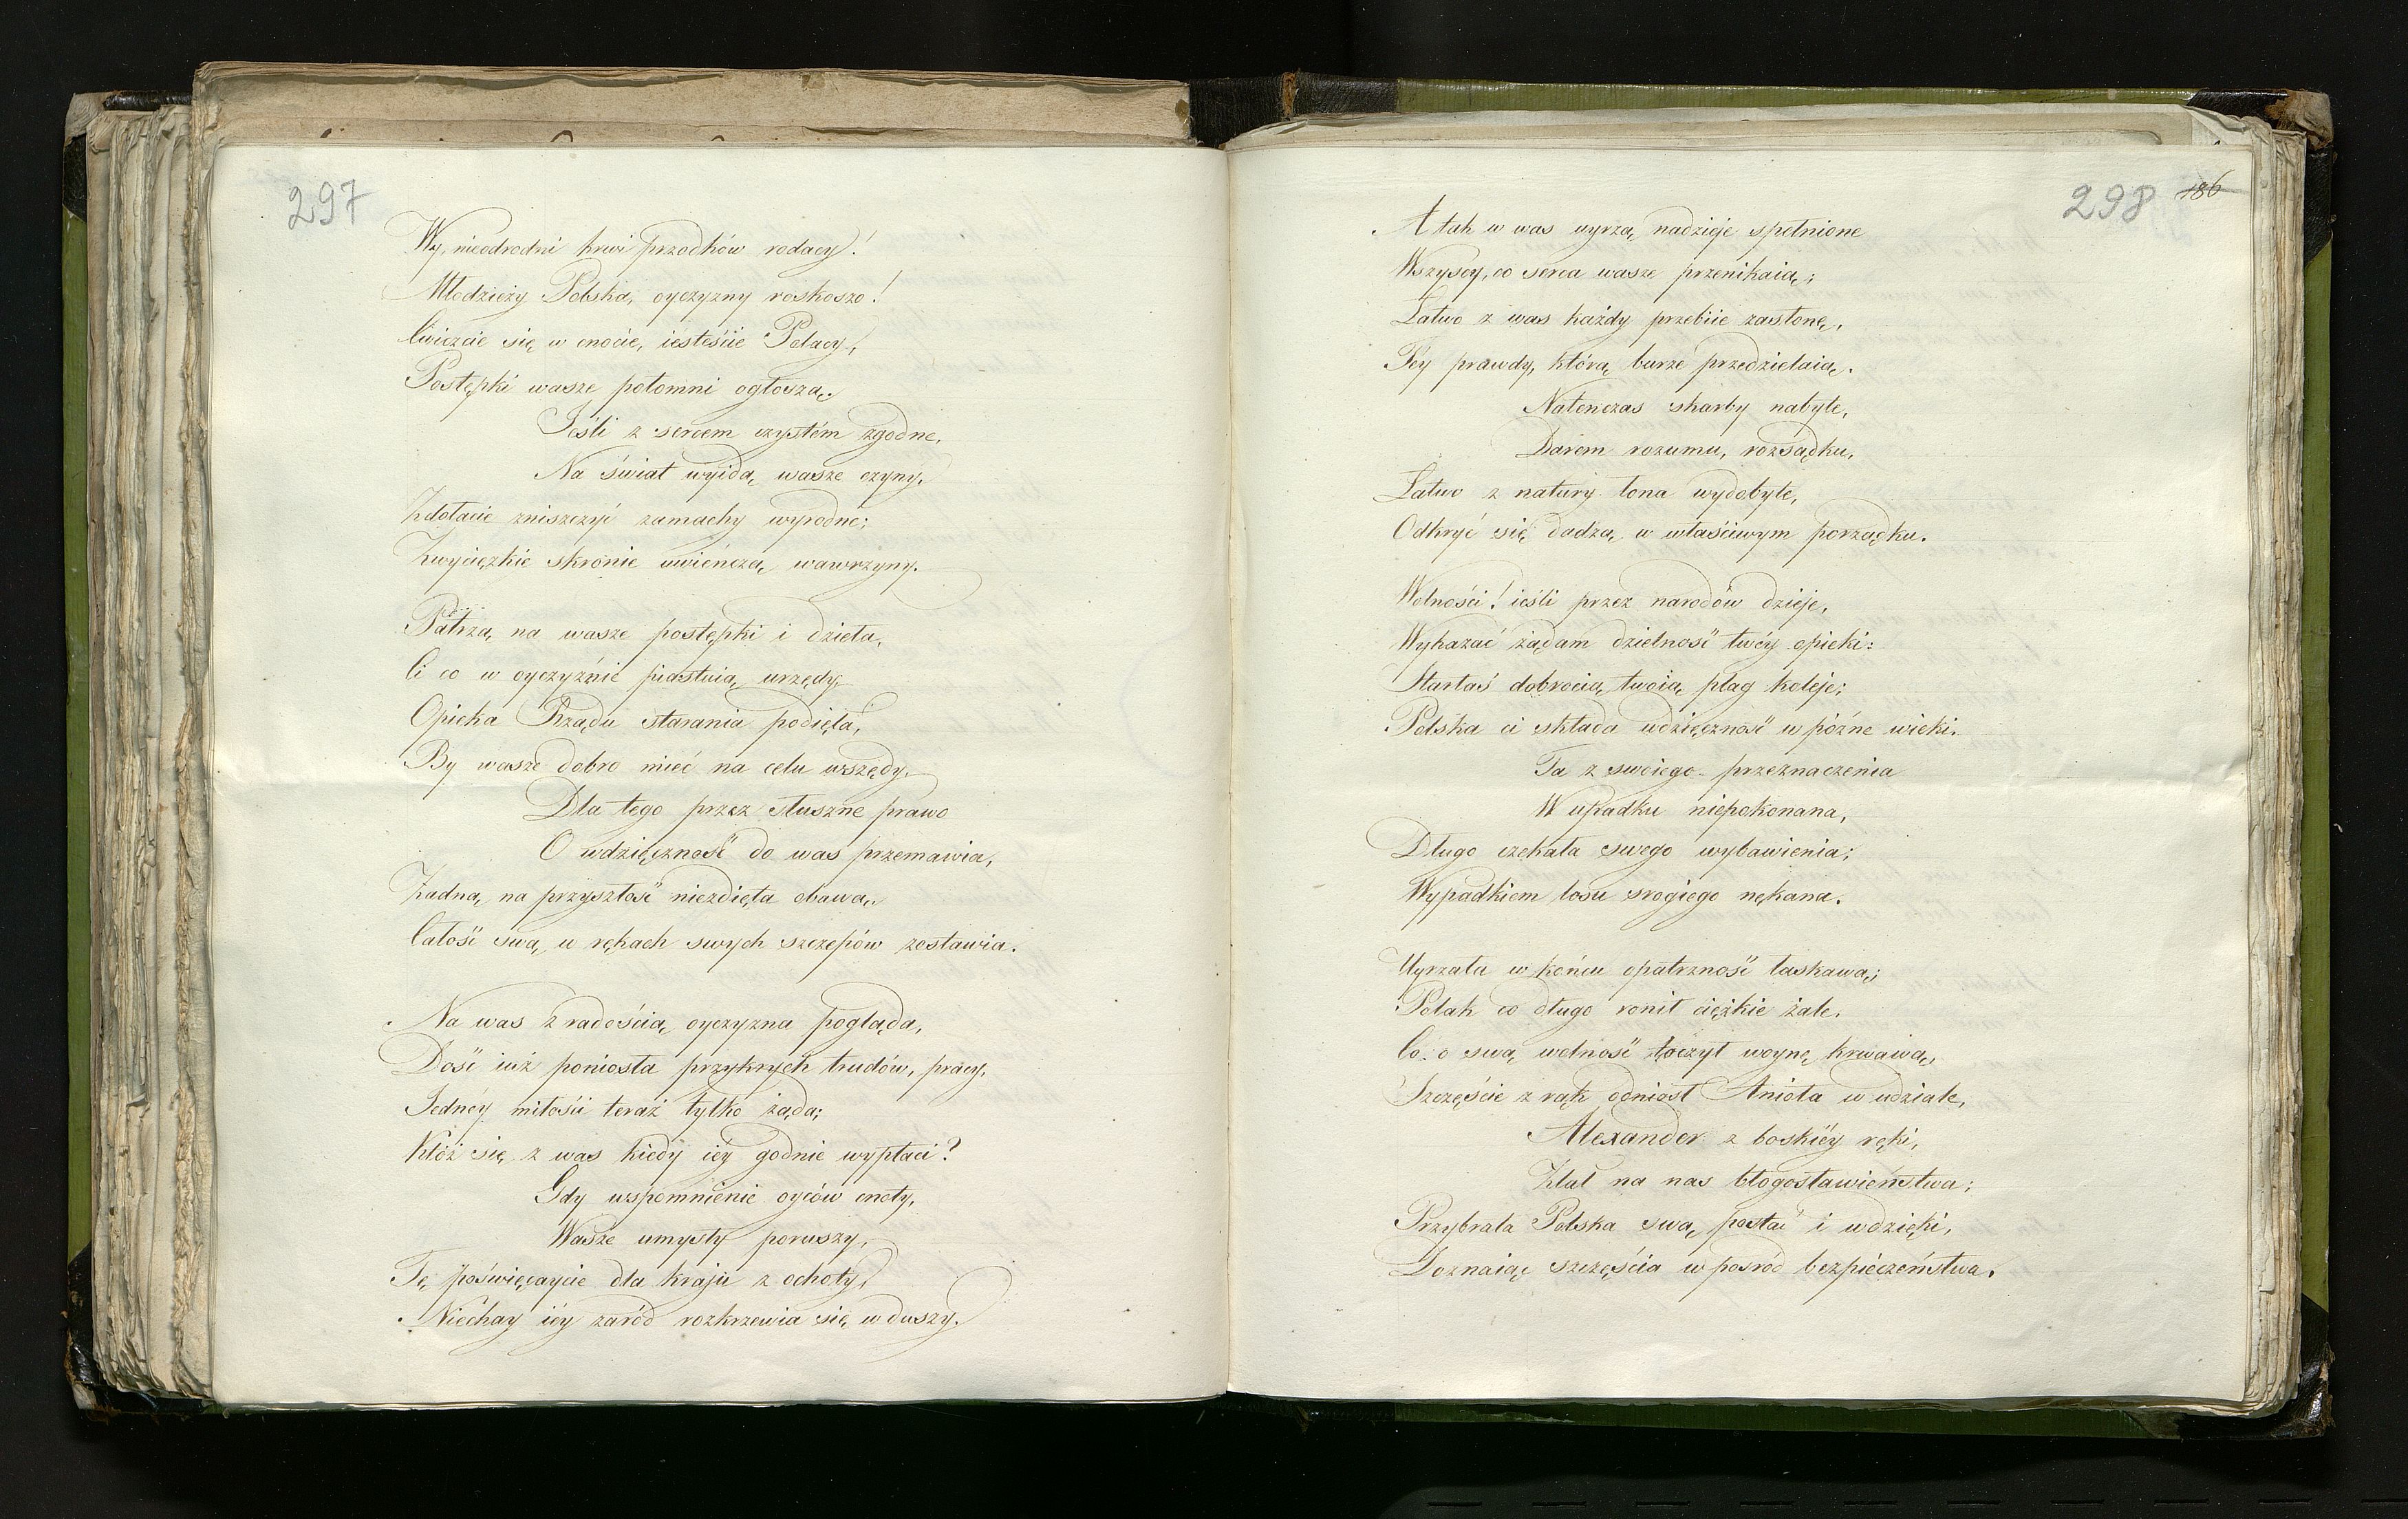 297
Wy, nieodrodni krwi przodków rodacy!
Młodzieży Polska, oyczyzny roskoszo!
Ćwiczcie się w cnocie, iesteście Polacy,
Postępki wasze potomni ogłoszą.
Jeśli z sercem czystém zgodne,
Na świat wyidą wasze czyny,
Zdołacie zniszczyć zamachy wyrodne;
Zwycięzkie skronie uwieńczą wawrzyny.
Patrzą na wasze postępki i dzieła,
Ci co w oyczyźnie piastuią urzędy,
Opieka Rządu starania podięła,
By wasze dobro mieć na celu wszędy.
Dla tego przez słuszne prawo
O wdzięczność do was przemawia,
Żadną na przyszłość niezdięta obawą,
Całość swą w rękach swych szczepów zostawia.
Na was z radością oyczyzna pogląda,
Dość iuż poniosła przykrych trudów, pracy,
Jednéy miłości teraż tylko żąda;
Któż się z was kiedy iéy godnie wypłaci?
Gdy wspomnienie oyców cnoty,
Wasze umysły poruszy,
Tę poświęcaycie dla kraju z ochoty,
Niechay iéy zaród rozkrzewia się w duszy.
298 186
A tak w was uyrzą nadzieje spełnione
Wszyscy, co serca wasze przenikaią;
Łatwo z was każdy przebiie zasłonę,
Téy prawdy, którą burze przedzielaią.
Natenczas skarby nabyte,
Darem rozumu, rozsądku,
Łatwo z natury łona wydobyte,
Odkryć się dadzą w właściwym porządku.
Wolności! ieśli przez narodów dzieje,
Wykazać żądam dzielność twéy opieki:
Starłaś dobrocią twoią plag koleje;
Polska ci składa wdzięczność w późne wieki.
Ta z swoiego przeznaczenia
W upadku niepokonana,
Długo czekała swego wybawienia;
Wypadkiem losu srogiego nękana.
Uyrzała w końcu opatrzność łaskawą;
Polak co długo ronił ciężkie żale,
Co o swą wolność toczył woynę krwawą,
Szczęście z rąk odniosł Anioła w udziale,
Alexander z boskiéy ręki,
Zlał na nas błogosławieństwa;
Przybrała Polska swą postać i wdzięki,
Doznaiąc szczęścia w posród bezpieczeństwa.